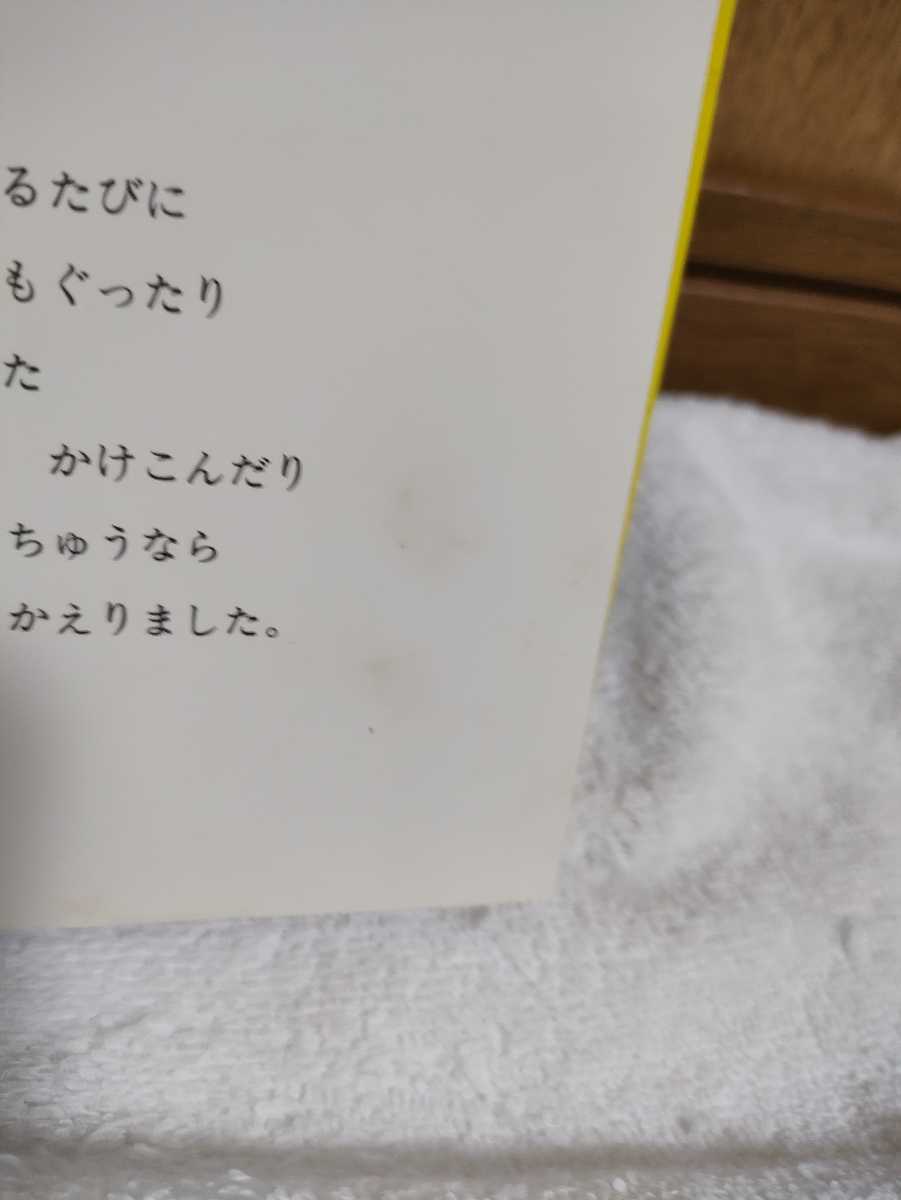 るたびに
もぐったり
た
かけこんだり
ちゅうなら
かえりました。